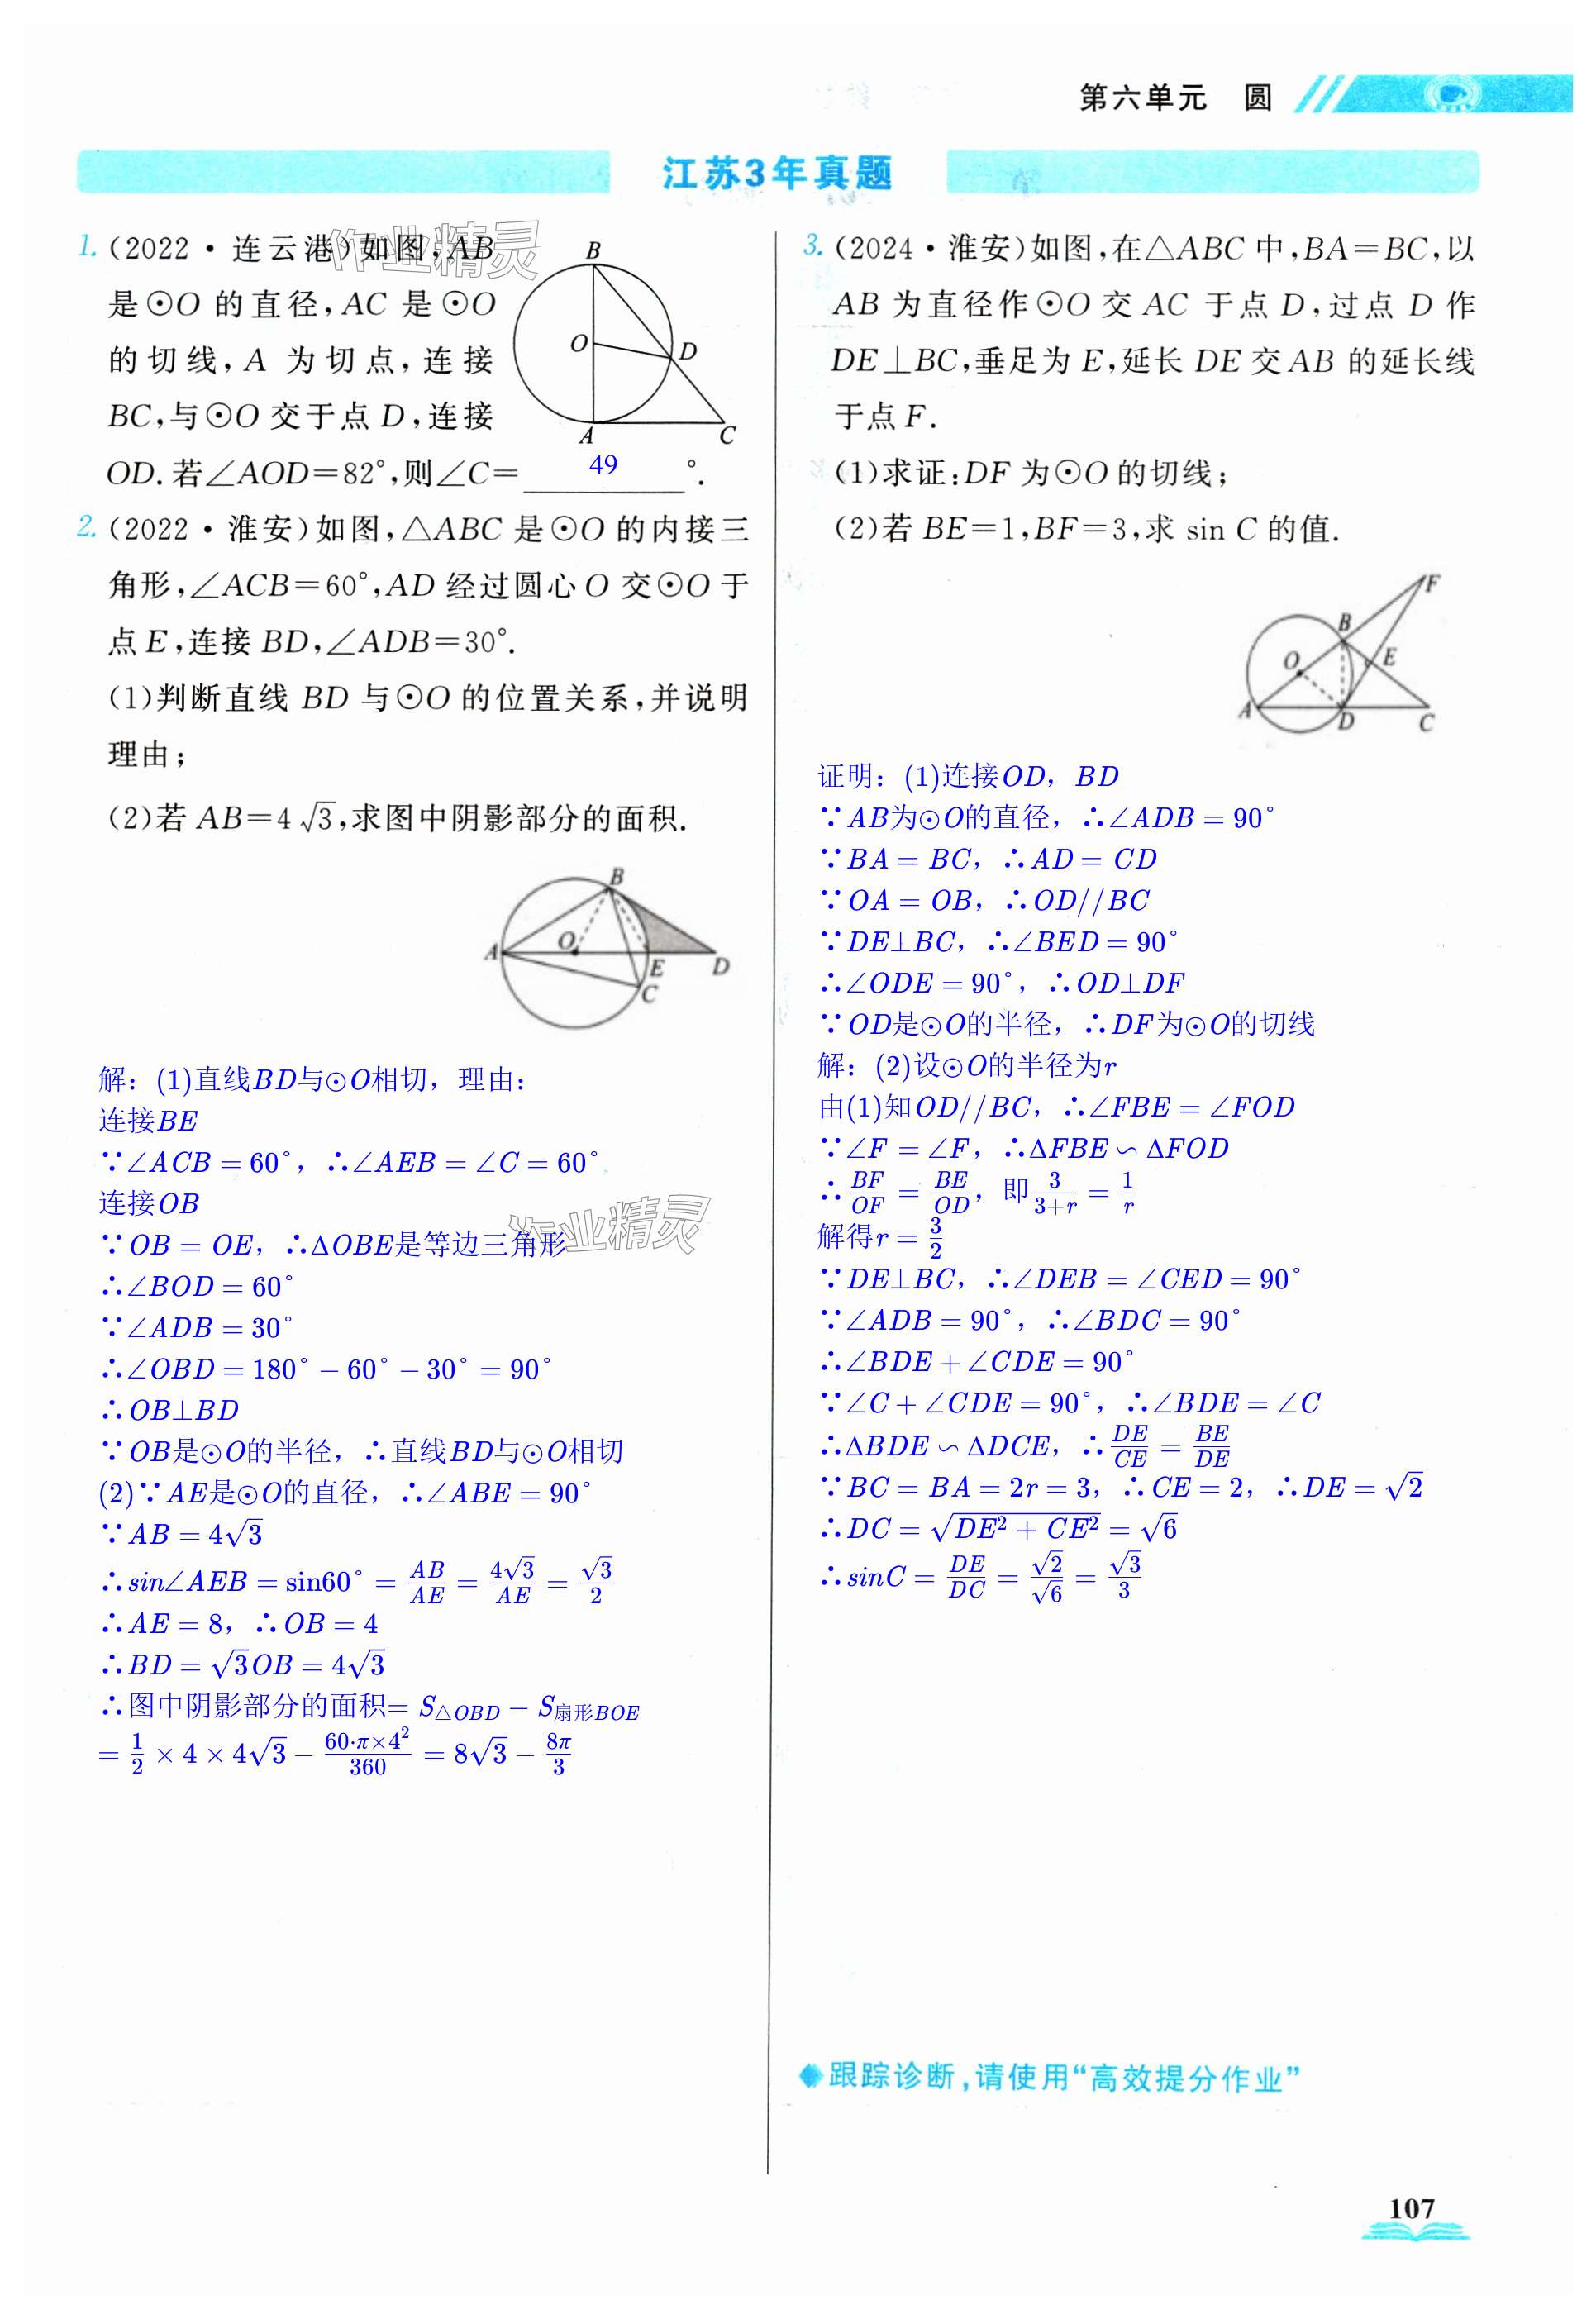 第六单元 圆
江苏3年真题
1. (2022·连云港)如图,AB
是⊙O 的直径,AC 是⊙O
的切线,A 为切点,连接
BC,与⊙O 交于点 D,连接
OD.若∠AOD=82°,则∠C= 49 °.
B
O
D
A
C
2. (2022·淮安)如图,△ABC 是⊙O 的内接三
角形,∠ACB=60°,AD 经过圆心 O 交⊙O 于
点 E,连接 BD,∠ADB=30°.
(1)判断直线 BD 与⊙O 的位置关系,并说明
理由;
(2)若 AB=4√3,求图中阴影部分的面积.
B
O
A
E
D
C
解：(1)直线BD与⊙O相切，理由：
连接BE
∵∠ACB=60°，∴∠AEB=∠C=60°
连接OB
∵OB=OE，∴ΔOBE是等边三角形
∴∠BOD=60°
∵∠ADB=30°
∴∠OBD=180°-60°-30°=90°
∴OB⊥BD
∵OB是⊙O的半径，∴直线BD与⊙O相切
(2)∵AE是⊙O的直径，∴∠ABE=90°
∵AB=4√3
∴sin∠AEB=sin60°=AB/AE=4√3/AE=√3/2
∴AE=8，∴OB=4
∴BD=√3OB=4√3
∴图中阴影部分的面积=S△OBD-S扇形BOE
=1/2×4×4√3-60·π×4²/360=8√3-8π/3
3. (2024·淮安)如图,在△ABC 中,BA=BC,以
AB 为直径作⊙O 交 AC 于点 D,过点 D 作
DE⊥BC,垂足为 E,延长 DE 交 AB 的延长线
于点 F.
(1)求证:DF 为⊙O 的切线;
(2)若 BE=1,BF=3,求 sin C 的值.
F
B
O
E
A
D
C
证明：(1)连接OD，BD
∵AB为⊙O的直径，∴∠ADB=90°
∵BA=BC，∴AD=CD
∵OA=OB，∴OD//BC
∵DE⊥BC，∴∠BED=90°
∴∠ODE=90°，∴OD⊥DF
∵OD是⊙O的半径，∴DF为⊙O的切线
解：(2)设⊙O的半径为r
由(1)知OD//BC，∴∠FBE=∠FOD
∵∠F=∠F，∴ΔFBE∽ΔFOD
∴BF/OF=BE/OD，即3/(3+r)=1/r
解得r=3/2
∵DE⊥BC，∴∠DEB=∠CED=90°
∵∠ADB=90°，∴∠BDC=90°
∴∠BDE+∠CDE=90°
∵∠C+∠CDE=90°，∴∠BDE=∠C
∴ΔBDE∽ΔDCE，∴DE/CE=BE/DE
∵BC=BA=2r=3，∴CE=2，∴DE=√2
∴DC=√(DE²+CE²)=√6
∴sinC=DE/DC=√2/√6=√3/3
◆跟踪诊断,请使用“高效提分作业”
107
作业精灵
作业精灵